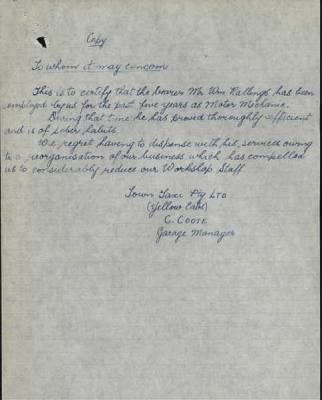 Copy
To whom it may concern
This is to certify that the bearer Mr Wm Rallings has been
employed by us for the past five years as Motor Mechanic.
During that time he has proved thoroughly efficient
and is of sober habits.
We regret having to dispense with his services owing
to a reorganisation of our business which has compelled
us to considerably reduce our Workshop Staff
Town Taxi Pty LTD
(Yellow Cabs)
C. COOTE
Garage Manager